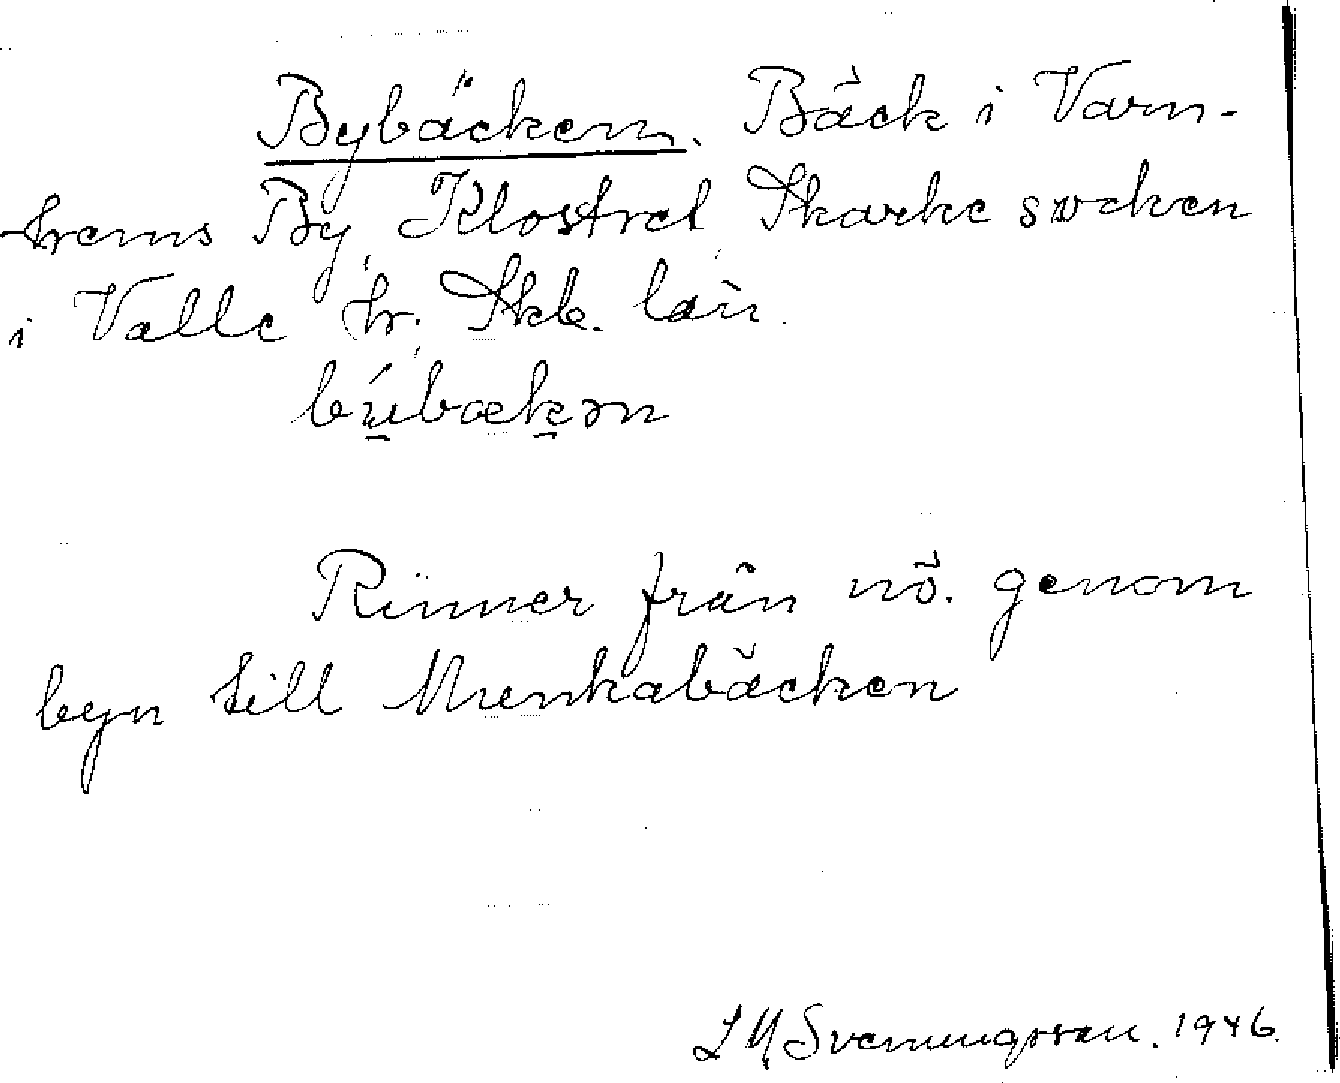 Bybäcken. Bäck i Varn-
hems By Klostret Skarke socken
i Valle hr. Skb. län.
bẏ́bækən
Rinner från nö. genom
byn till Munkabäcken
Svenungsson. 1946.